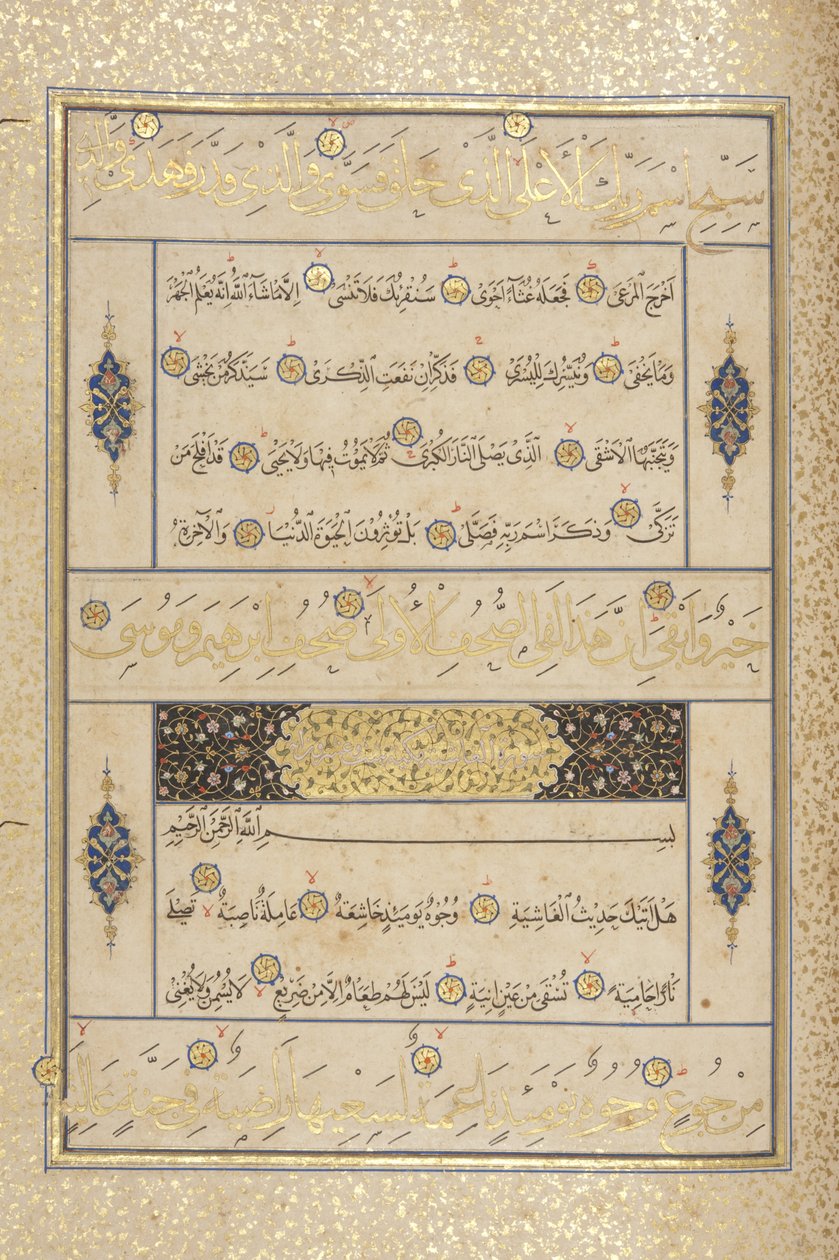 سَبِّحِ اسْمَ رَبِّكَ الْأَعْلَى الَّذِي خَلَقَ فَسَوَّى وَالَّذِي قَدَّرَ فَهَدَى وَالَّذِي
اَخْرَجَ الْمَرْعَى فَجَعَلَهُ غُثَآءً اَحْوَى سَنُقْرِئُكَ فَلَا تَنْسَى اِلَّا مَا شَآءَ اللّٰهُ اِنَّهُ يَعْلَمُ الْجَهْرَ
وَمَا يَخْفَى وَنُيَسِّرُكَ لِلْيُسْرَى فَذَكِّرْ اِنْ نَفَعَتِ الذِّكْرَى سَيَذَّكَّرُ مَنْ يَخْشَى
وَيَتَجَنَّبُهَا الْاَشْقَى الَّذِي يَصْلَى النَّارَ الْكُبْرَى ثُمَّ لَا يَمُوتُ فِيهَا وَلَا يَحْيَى قَدْ اَفْلَحَ مَنْ
تَزَكَّى وَذَكَرَ اسْمَ رَبِّهِ فَصَلَّى بَلْ تُؤْثِرُونَ الْحَيٰوةَ الدُّنْيَا وَالْآخِرَةُ
خَيْرٌ وَأَبْقَى إِنَّ هَذَا لَفِي الصُّحُفِ الْأُولَى صُحُفِ إِبْرَهِيمَ وَمُوسَى
سورة الغاشية
بِسْمِ اللّٰهِ الرَّحْمٰنِ الرَّحِيمِ
هَلْ اَتٰيكَ حَدِيثُ الْغَاشِيَةِ وُجُوهٌ يَوْمَئِذٍ خَاشِعَةٌ عَامِلَةٌ نَاصِبَةٌ تَصْلَى
نَارًا حَامِيَةً تُسْقَى مِنْ عَيْنٍ اٰنِيَةٍ لَيْسَ لَهُمْ طَعَامٌ اِلَّا مِنْ ضَرِيعٍ لَا يُسْمِنُ وَلَا يُغْنِي
مِنْ جُوعٍ وُجُوهٌ يَوْمَئِذٍ نَاعِمَةٌ لِسَعْيِهَا رَاضِيَةٌ فِي جَنَّةٍ عَالِيَةٍ